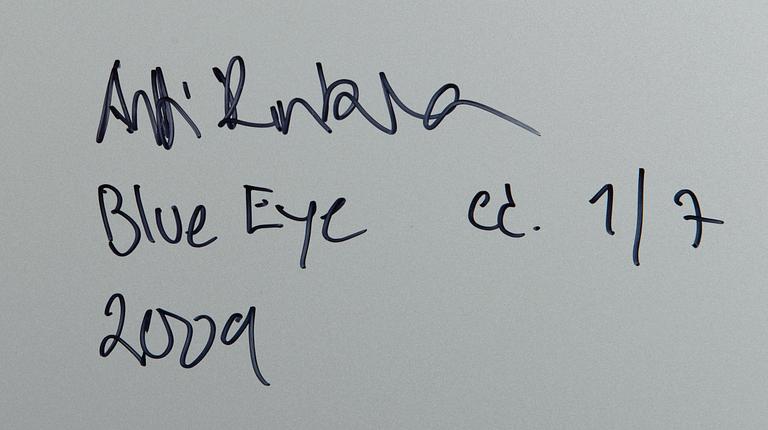 Antti
Blue Eye ed. 1/7
2009